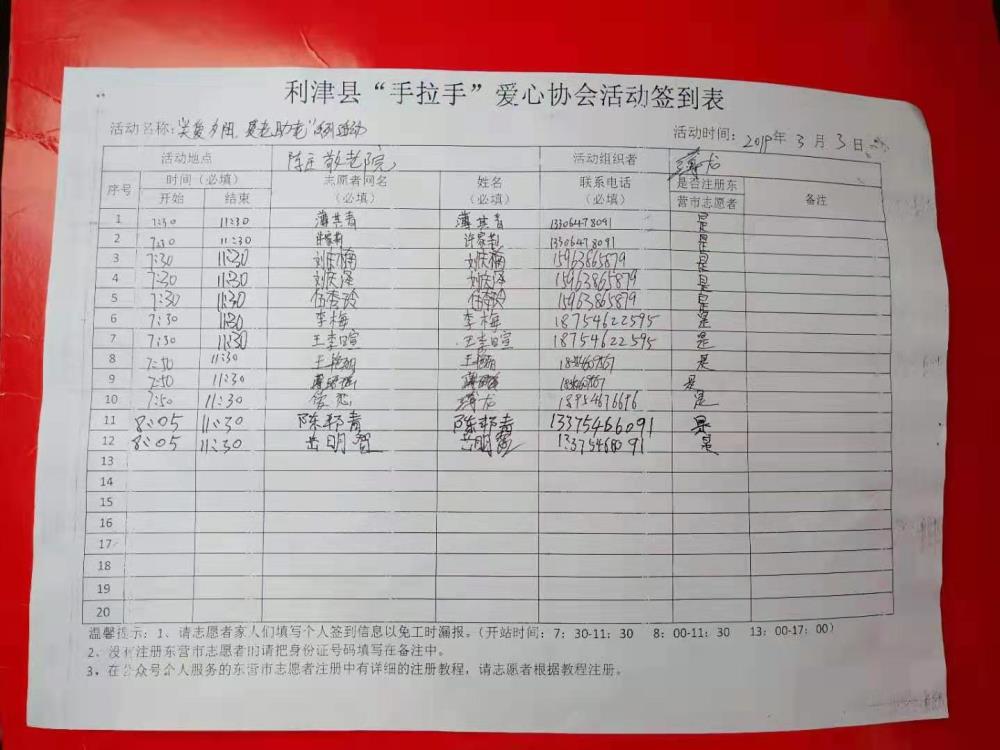 利津县“手拉手”爱心协会活动签到表
活动名称："关爱夕阳，爱老助老"系列活动 活动时间：2019年3月3日
活动地点 陈庄敬老院 活动组织者
序号 时间（必填） 志愿者网名 姓名 联系电话 是否注册东 备注
开始 结束 （必填） （必填） （必填） 营市志愿者
1 7:30 11:30 薄其青 薄其青 13306478091 是
2 7:30 11:30 许家 13306478091 是
3 7:30 11:30 刘庆楠 刘庆楠 15963865879 是
4 7:30 11:30 刘庆泽 刘庆泽 15963865879 是
5 7:30 11:30 伍秀玲 伍秀玲 15963865879 是
6 7:30 11:30 李梅 李梅 18754622595 是
7 7:30 11:30 王李暄 王李暄 18754622595 是
8 7:50 11:30 王 王 是
9 7:50 11:30 是
10 7:50 11:30 18954676696 是
11 8:05 11:30 陈邦青 陈邦青 13375466091 是
12 8:05 11:30 岳明智 岳明 是
13
14
15
16
17
18
19
20
温馨提示：1、请志愿者家人们填写个人签到信息以免工时漏报。（开站时间：7：30-11：30 8：00-11：30 13：00-17：00）
2、没有注册东营市志愿者的请把身份证号码填写在备注中。
3，在公众号个人服务的东营市志愿者注册中有详细的注册教程，请志愿者根据教程注册。